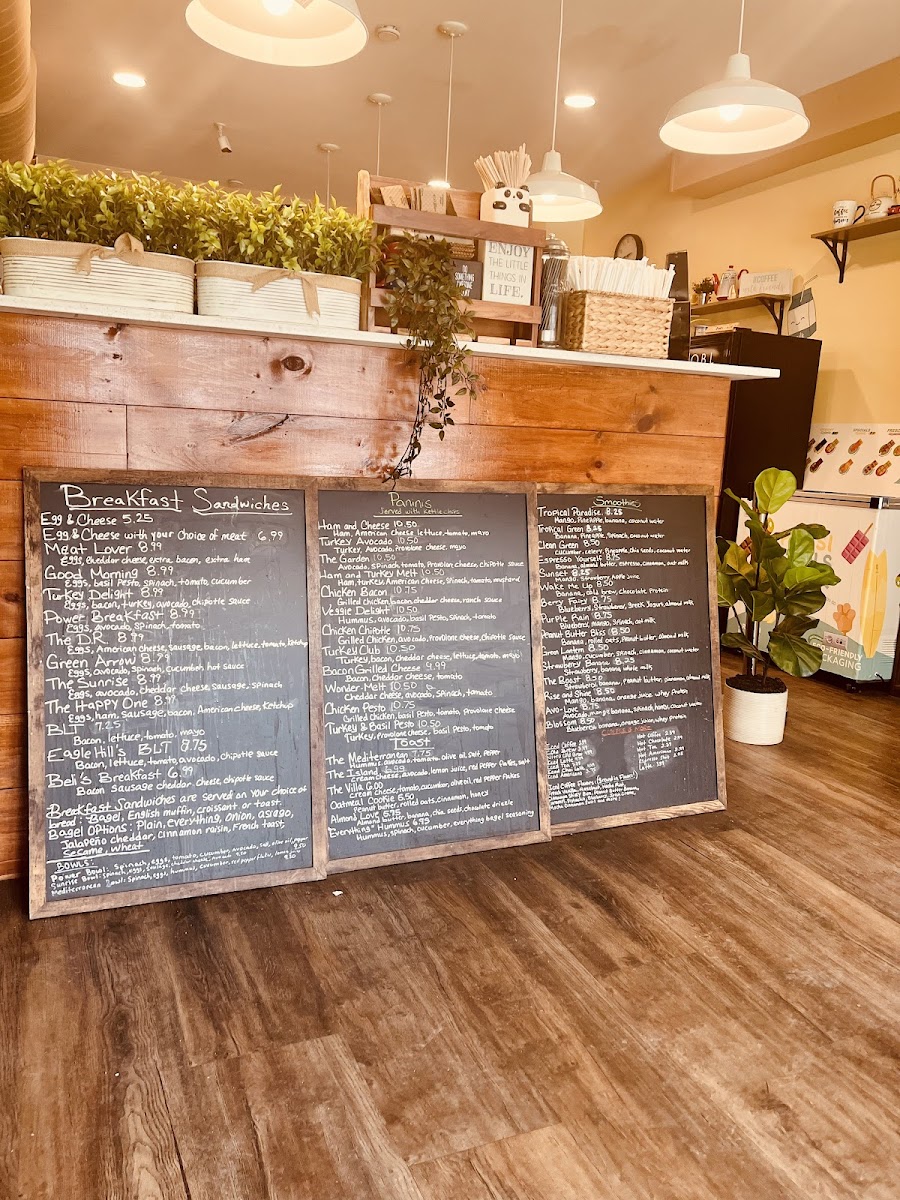 ENJOY
THE LITTLE
THINGS IN
LIFE.
Breakfast Sandwiches
Egg & Cheese 5.25
Egg & Cheese with your choice of meat 6.99
Meat Lover 8.99
Eggs, cheddar cheese, extra bacon, extra ham
Good Morning 8.99
Eggs, basil Pesto, spinach, tomato, cucumber
Turkey Delight 8.99
Eggs, bacon, turkey, avocado, chipotle sauce
Power Breakfast 8.99
Eggs, avocado, spinach, tomato
The D.R. 8.99
Eggs, American cheese, sausage, bacon, lettuce, tomato, ketchup
Green Arrow 8.99
Eggs, avocado, spinach, cucumber, hot sauce
The Sunrise 8.99
Eggs, avocado, cheddar cheese, sausage, spinach
The Happy One 8.99
Eggs, ham, sausage, bacon, American cheese, ketchup
BLT 7.25
Bacon, lettuce, tomato, mayo
Eagle Hill's BLT 8.75
Bacon, lettuce, tomato, avocado, chipotle sauce
Beli's Breakfast 6.99
Bacon sausage cheddar cheese, chipotle sauce
Breakfast Sandwiches are served on your choice of
bread: Bagel, English muffin, croissant or toast.
Bagel Options: Plain, everything, onion, asiago,
Jalapeño cheddar, cinnamon raisin, French toast,
sesame, wheat
BOWLS:
Power Bowl: spinach, eggs, tomato, cucumber, avocado, salt, olive oil, pepper
Sunrise Bowl: spinach, eggs, sausage, cheddar cheese, avocado
Mediterranean Bowl: Spinach, eggs, hummus, cucumber, red pepper flakes
Paninis
Served with Kettle chips
Ham and Cheese 10.50
Ham, American cheese, lettuce, tomato, mayo
Turkey Avocado 10.50
Turkey, Avocado, Provolone cheese, mayo
10.50
Avocado, spinach, tomato, Provolone cheese, chipotle sauce
Ham and Turkey Melt 10.50
Ham, turkey, American cheese, Spinach, tomato, mustard
Chicken Bacon 10.50
Grilled chicken, bacon, cheddar cheese, ranch sauce
Veggie Delight 10.50
Hummus, avocado, basil Pesto, Spinach, tomato
Chicken Chipotle 10.75
Grilled Chicken, avocado, provolone cheese, chipotle sauce
Turkey Club 10.50
Turkey, bacon, cheddar cheese, lettuce, tomato, mayo
Bacon Grilled Cheese 9.99
Bacon, cheddar cheese, tomato
Wonder Melt 10.50
Cheddar cheese, avocado, spinach, tomato
Chicken Pesto 10.75
Grilled chicken, basil Pesto, tomato, provolone cheese
Turkey & Basil Pesto 10.50
Turkey, Provolone cheese, basil Pesto, tomato
Toast
The Mediterranean 7.75
Hummus, avocado, tomato, olive oil, salt, pepper
The Island 6.99
cream cheese, avocado, lemon juice, red pepper flakes, salt
The Villa 6.00
cream cheese, tomato, cucumber, olive oil, red pepper flakes
Oatmeal Cookie 5.50
Peanut butter, rolled oats, cinnamon, honey
Almond Love 5.75
Almond butter, banana, chia seeds, chocolate drizzle
"Everything" Hummus 6.75
Hummus, spinach, cucumber, everything bagel seasoning
Smoothies
Tropical Paradise 8.25
Mango, Pineapple, banana, coconut water
Tropical Green 8.25
Banana, Pineapple, Spinach, coconut water
Clean Green 8.50
cucumber, celery, Pineapple, chia seeds, coconut water
Espresso Yourself 8.75
Banana, almond butter, espresso, cinnamon, oat milk
Sunset 8.25
Mango, Strawberry, Apple Juice
Wake Me Up 8.50
Banana, cold brew, chocolate Protein
Berry Fairy 8.75
Blueberry, Strawberry, Greek Yogurt, almond milk
Purple Rain 8.75
Blueberry, mango, Spinach, oat milk
Peanut Butter Bliss 8.50
Banana, rolled oats, Peanut butter, almond milk
Green Lantern 8.50
Mango, cucumber, spinach, coconut water
Strawberry Banana 8.25
Strawberry, banana, whole milk
The Boost 8.50
Strawberry, banana, Peanut butter, cinnamon, almond milk
Rise and Shine 8.50
Mango, banana, orange juice, whey Protein
Avo-Love 8.75
Avocado, mango, banana, spinach, honey, coconut water
Blossom 8.50
Blueberry, banana, orange juice, whey protein
COFFEE & MORE
Iced Coffee
Iced Latte
Iced Tea
Iced Chai Latte
Iced Americano
Hot Coffee
Hot Chocolate
Hot Tea
Hot Americano
Espresso Shot
Latte
ECO-FRIENDLY
PACKAGING